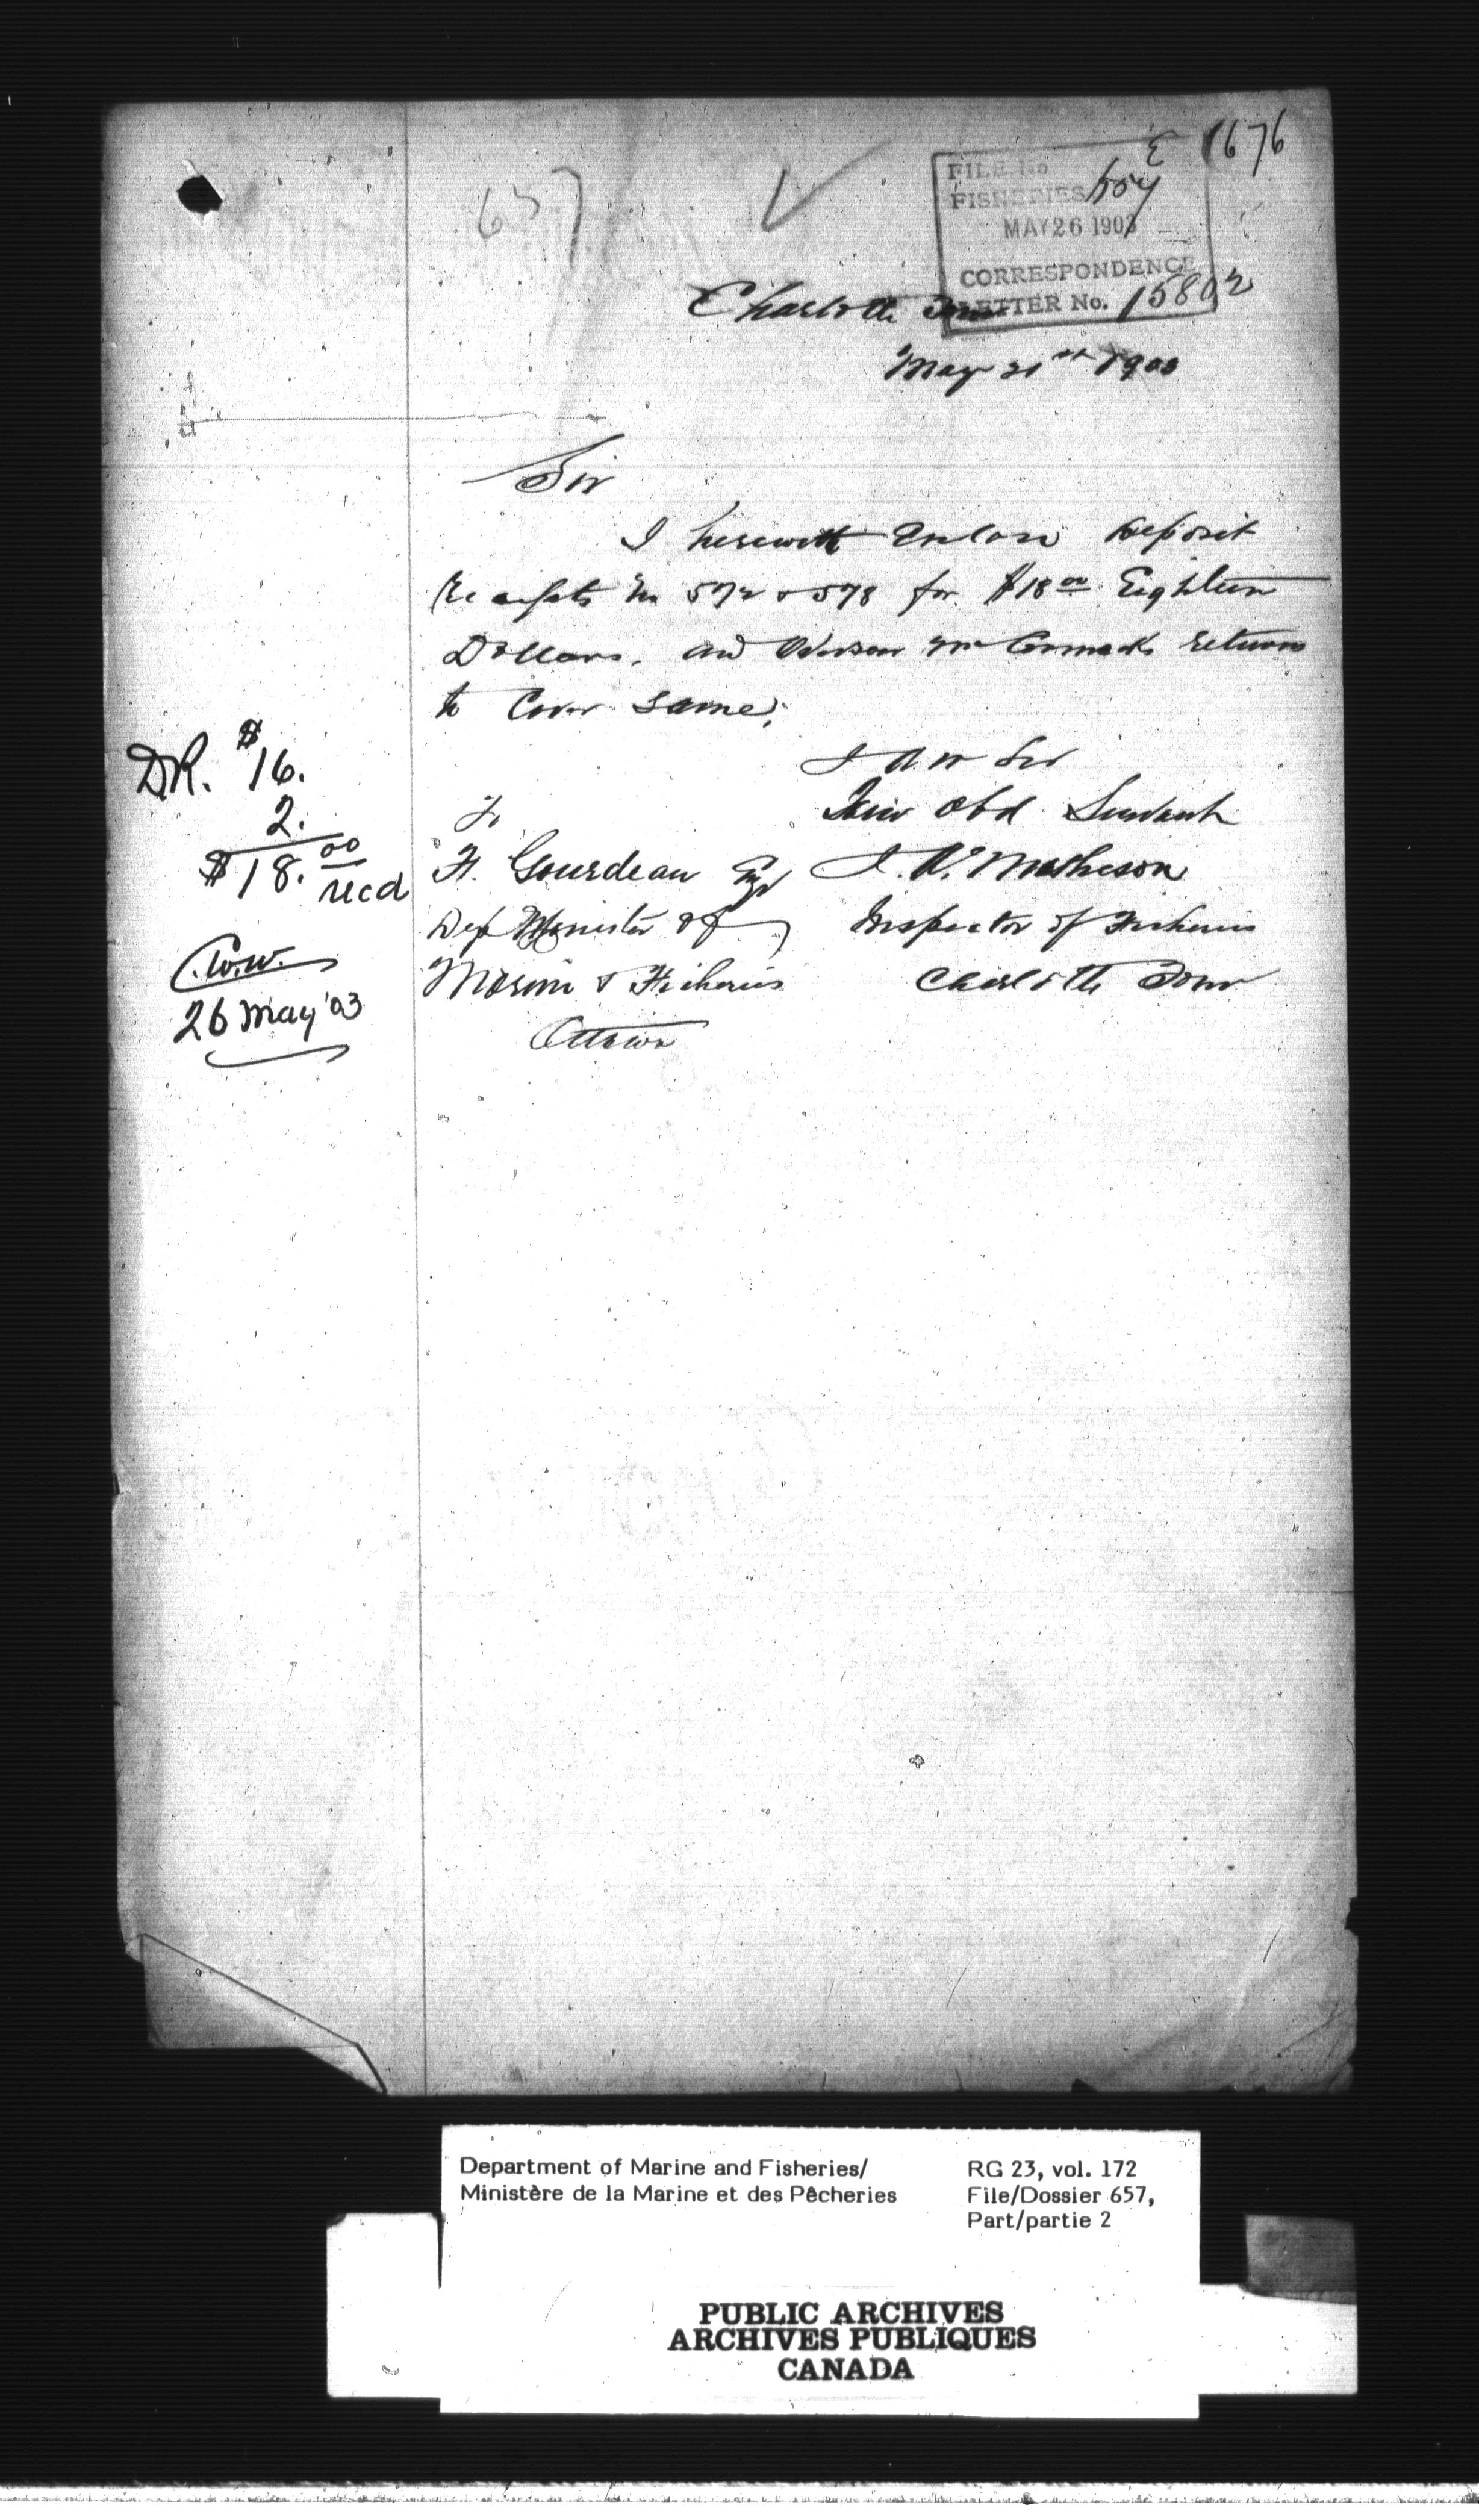 1676
657
FILE No
FISHERIES
MAY 26 1903
CORRESPONDENCE
LETTER No. 15802
Charlotte Town
May 21st 1903
Sir
I herewith Enclose Deposit
Receipts No 572 & 578 for $18 00 Eighteen
Dollars. and Overseer McCormacks returns
to Cover same.
I am Sir
Your Obd Servant
J. A. Matheson
Inspector of Fisheries
Charlotte Town
To
F. Gourdeau Esq
Dep Minister of
Marine & Fisheries
Ottawa
DR. $16.
2.
$18.00 recd
C.W.W.
26 May '03
Department of Marine and Fisheries/
Ministère de la Marine et des Pêcheries
RG 23, vol. 172
File/Dossier 657,
Part/partie 2
PUBLIC ARCHIVES
ARCHIVES PUBLIQUES
CANADA